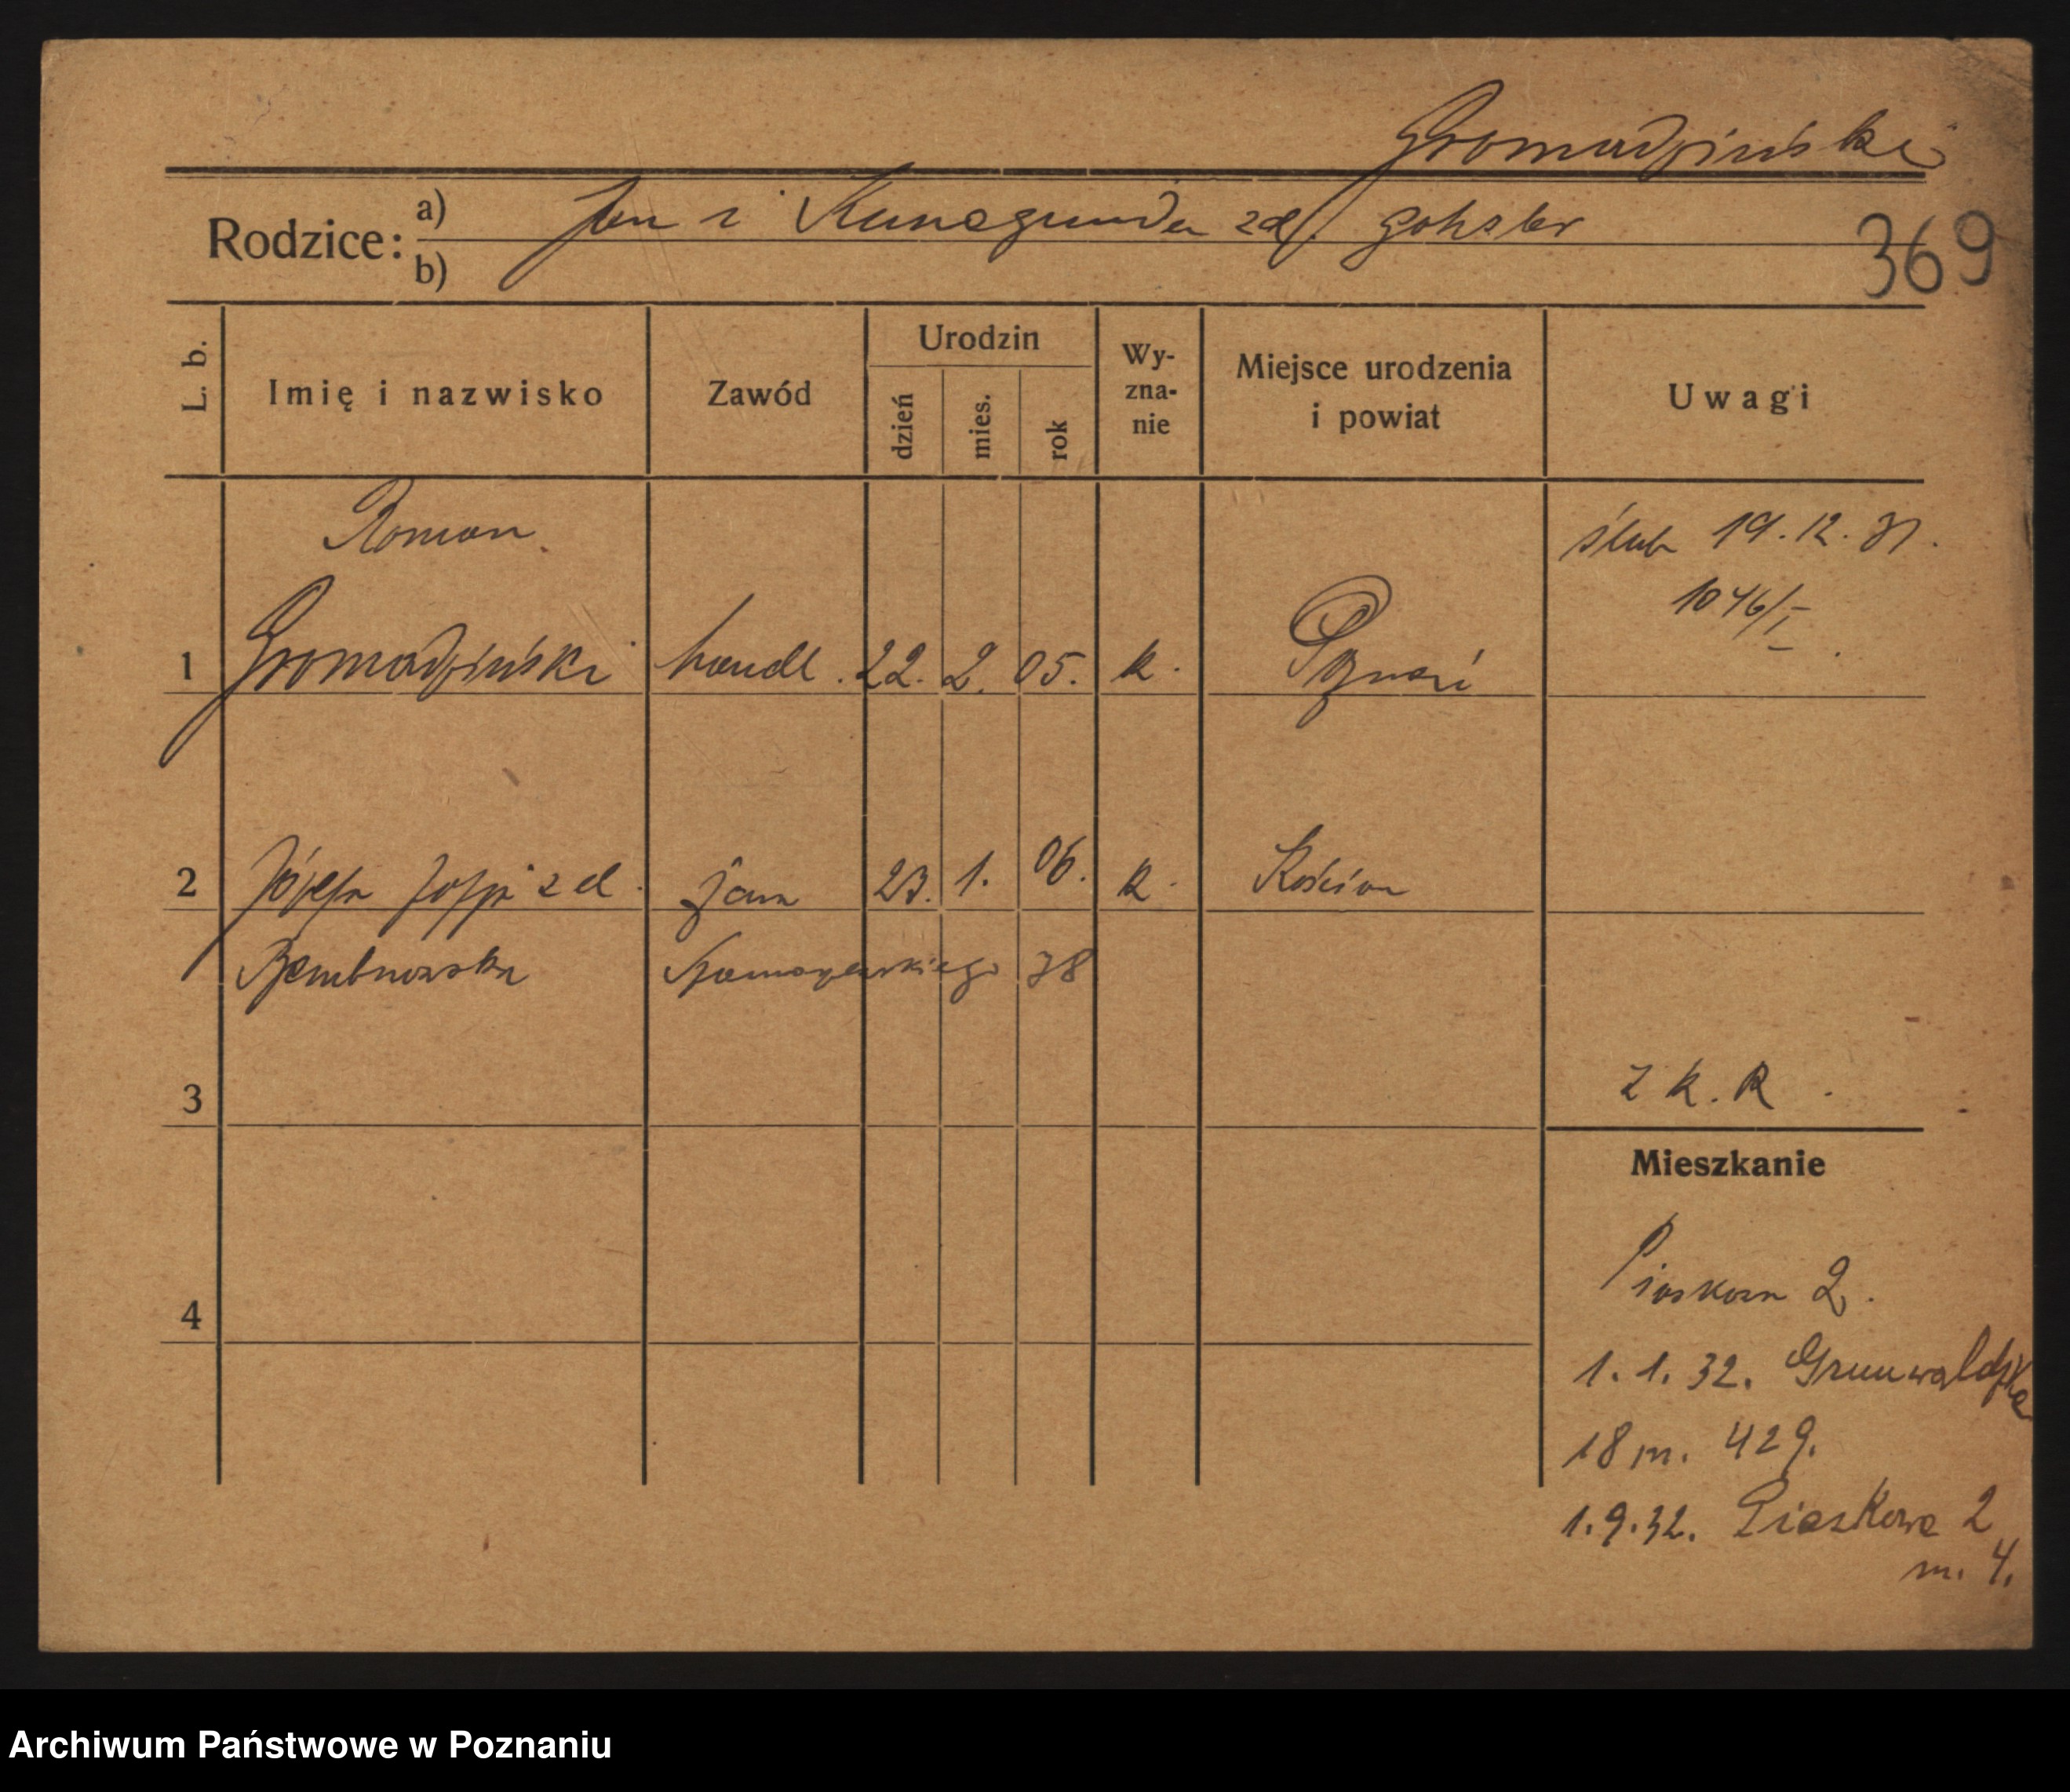 Gromadziński
Rodzice:
a) Jan i Kunegunda zd.
b)
369
L. b.
Imię i nazwisko
Zawód
Urodzin
dzień
mies.
rok
Wy-
zna-
nie
Miejsce urodzenia
i powiat
Uwagi
Roman
ślub 19.12.31.
1046/I
1 Gromadziński handl. 22. 2. 05. k. Poznań
2 Józefa zd. Jana 23. 1. 06. k. Kościan
38
3
Z k. R.
Mieszkanie
4
Piaskowa 2.
1.1.32. Grunwaldzka
18 m. 429.
1.9.32. Piaskowa 2
m. 4.
Archiwum Państwowe w Poznaniu